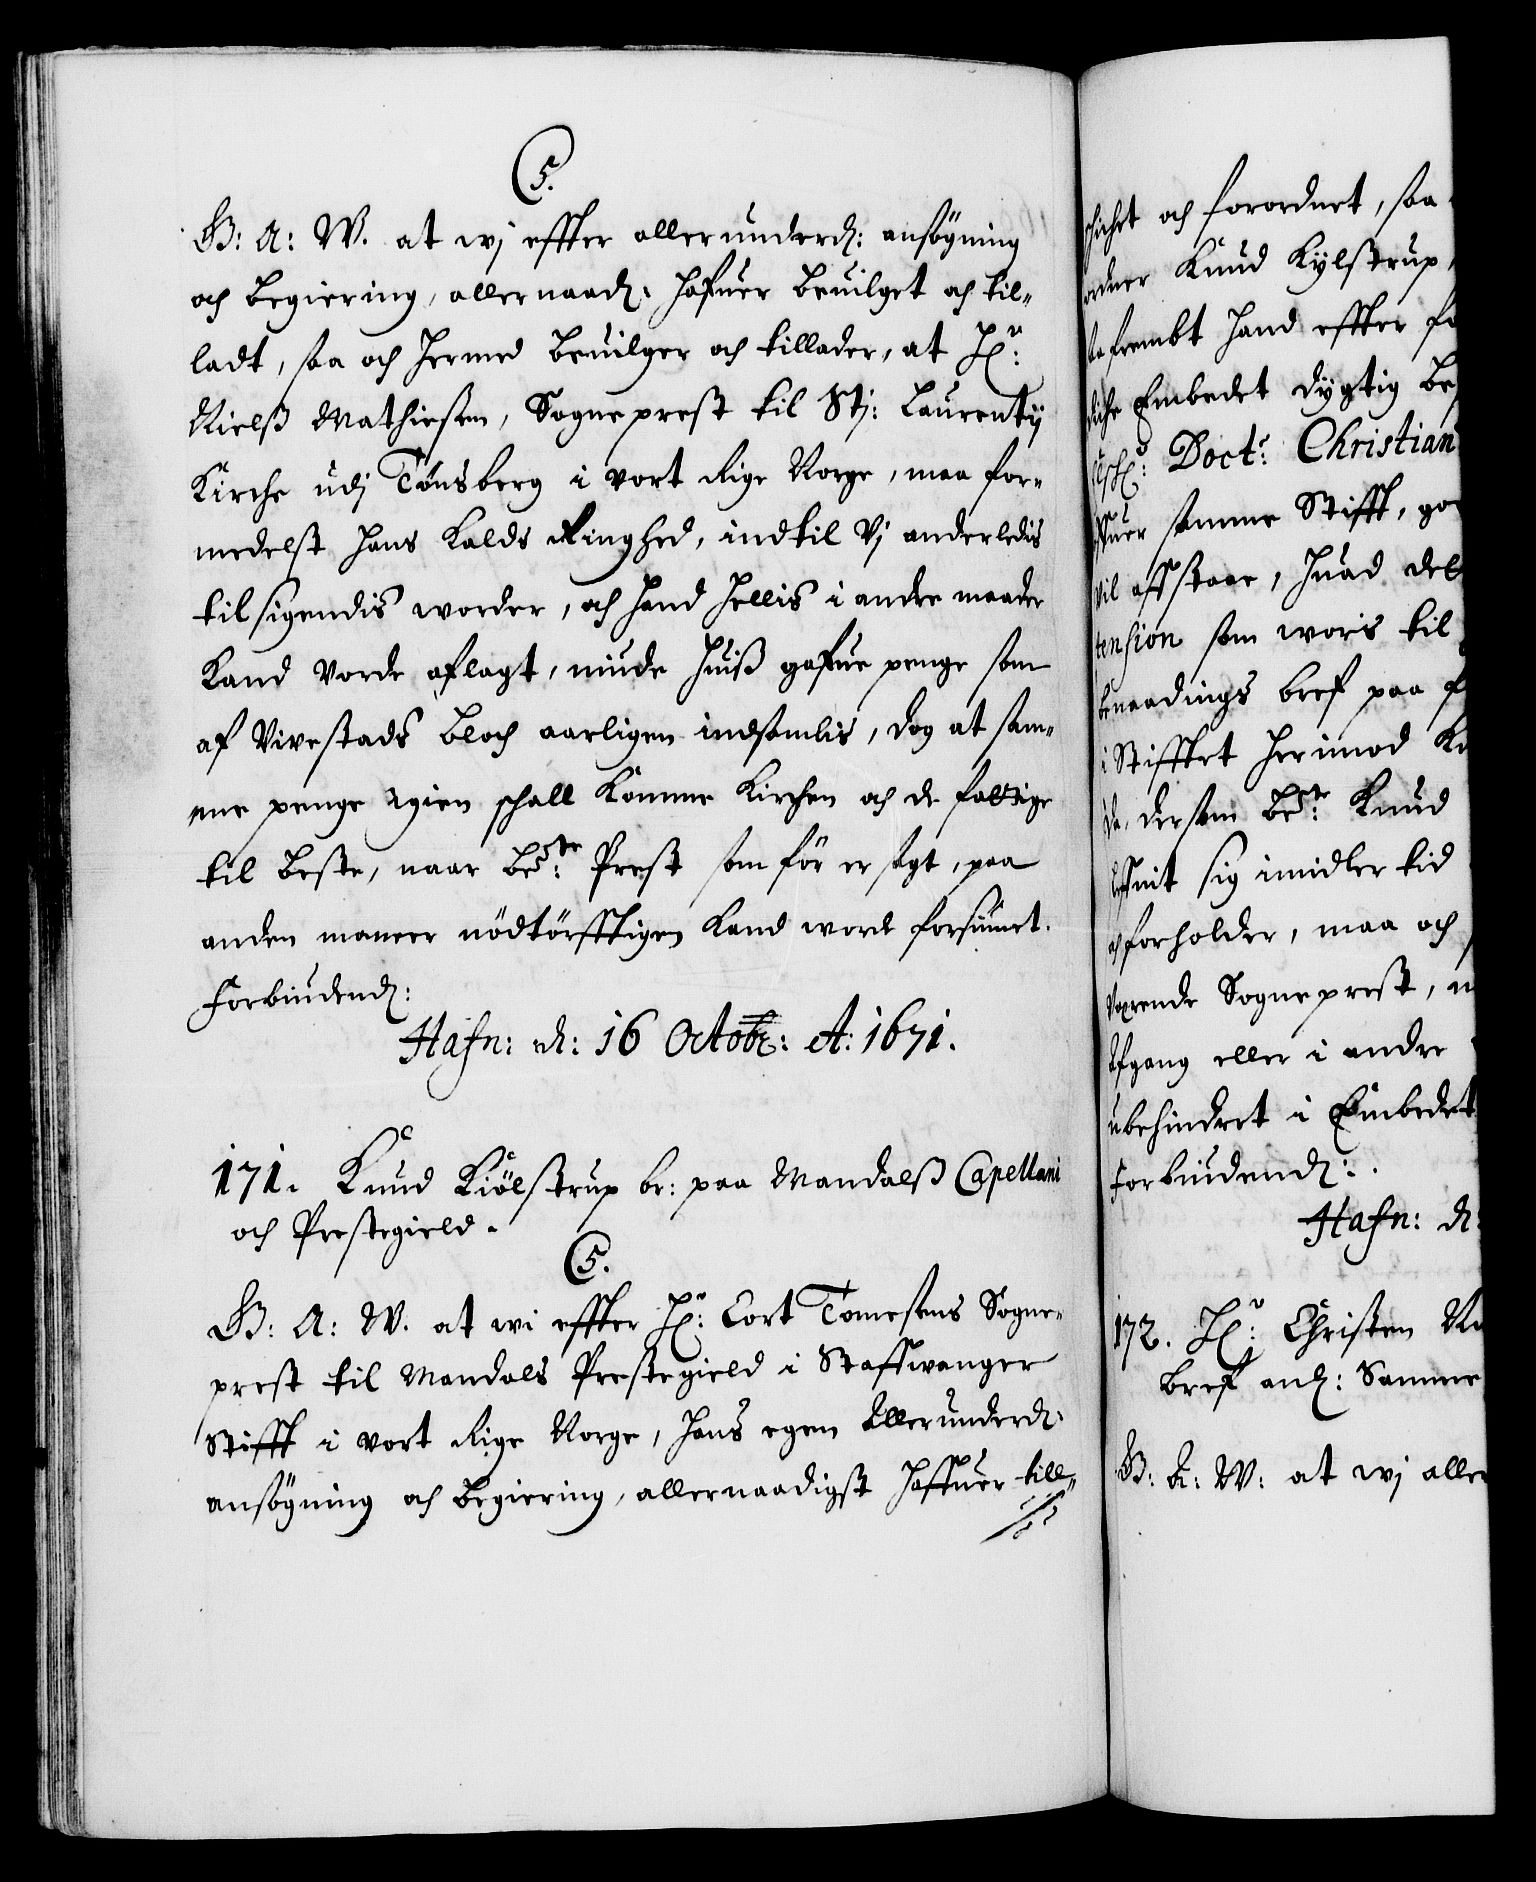 C5.
G: A: W. at wj effter allerunderd: ansögning
och begiering, allernaad: hafuer beuilget och til„
ladt, saa och hermed beuilger och tillader, at Hr:
Nielß Mathiesen, Sogneprest til Stj: Laurentij
Kirche udj Tønsberg i vort Rige Norge, maa for„
medelst hans Kalds Ringhed, indtil Vj anderledis
tilsigendis worder, och hand hellis i andre maader
Kand vorde aflagt, niude huiß gafue penge som
af Vivestads bloch aarligen indsamlis, dog at sam„
me penge igien schall Komme Kirchen och de fattige
til beste, naar bete: Prest som för er sagt, paa
anden maneer nödtörfftigen Kand worde forsiunet.
Forbiudend:
Hafn: d: 16 Octobr: A: 1671.
171. Knud Kiölstrup br: paa Mandalß Capellani
och Prestegield.
C5.
G: A: W. at wi effter Hr: Cort Tomesens Sogne„
prest til Mandals Prestegield i Staffwanger
Stifft i vort Rige Norge, hans egen Allerunderd:
ansögning och begiering, allernaadigst haffuer till„
schichet och forordnet, saa
ordner Knud Kylstrup,
frembt hand effter
Embedet dygtig be
Doctr: Christian
samme Stifft, go
vil affstaae, huad det
tension som woris til
benaadings bref paa f
i Stifftet herimod K
dersom bete: Knud
sig imidler tid
och forholder, maa och
værende Sogneprest,
Afgang eller i andre
ubehindret i Embedet
Forbiudend:.
Hafn: d:
172. Hr: Christen N
bref anl: Samme
G: A: W: at wj aller